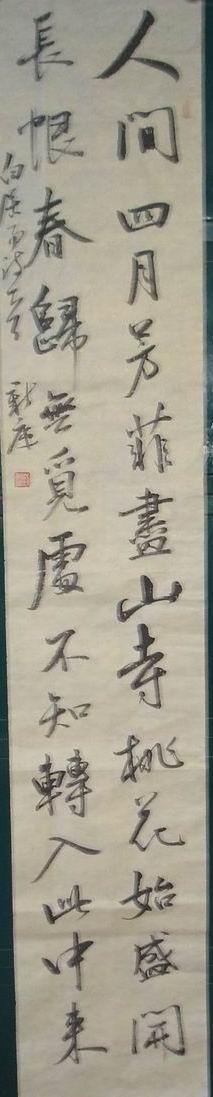 人間四月芳菲盡山寺桃花始盛開
長恨春歸無覓處不知轉入此中来
白居易詩